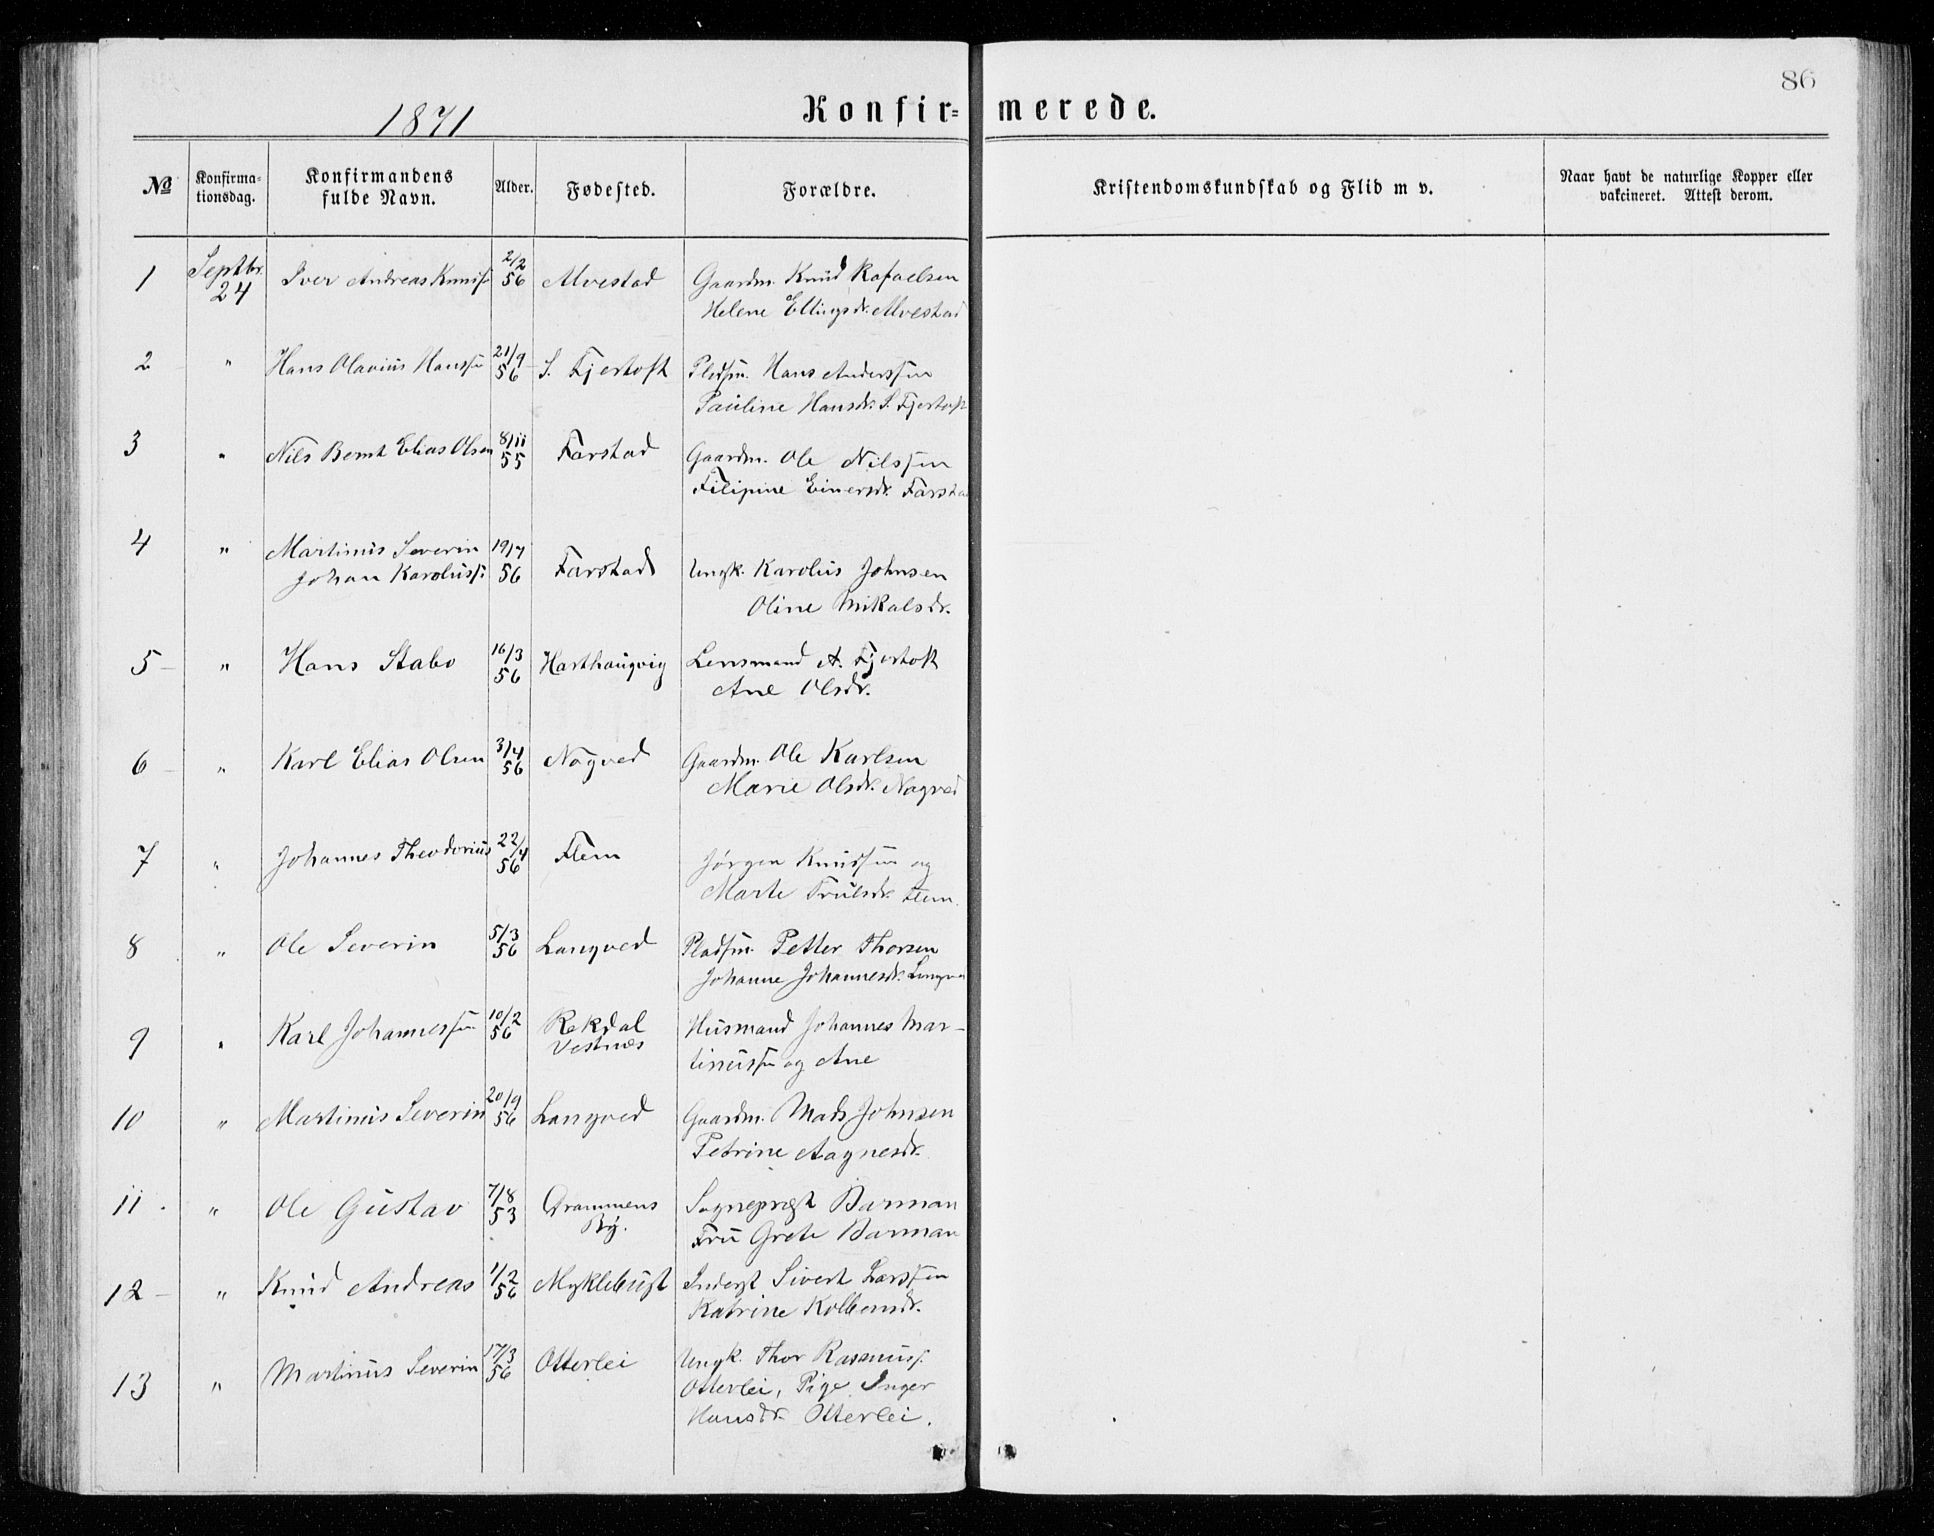 86
1871
Konfir= merede.
№ Konfirma-tionsdag. Konfirmandens fulde Navn. Alder. Fødested. Forældre. Kristendomskundskab og Flid m v. Naar havt de naturlige Kopper eller vakcineret. Attest derom.
1 Septbr. 24 Iver Andreas Knuds. 2/2 56 Alvestad Gaardm. Knud Rafaelsen
Helene Ellingsdr. Alvestad
2 " Hans Olavius Hanssen 21/9 56 S. Fjertoft Pladsm. Hans Anderssen
Pauline Hansdr. S. Fjertoft
3 " Nils Bernt Elias Olsen 8/11 55 Farstad Gaardm. Ole Nilssen
Filipine Einersdr. Farstad
4 " Martinus Severin 19/7
Johan Karoluss. 56 Farstad Ungk. Karolus Johnsen
Oline Mikalsdr.
5 " Hans Stabo 16/3 56 Harthaugvig Lensmand A. Fjertoft
Ane Olsdr.
6 " Karl Elias Olsen 3/4 56 Nogved Gaardm. Ole Karlsen
Marie Olsdr. Nogved
7 " Johannes Theodorius 22/4 56 Flem Jørgen Knudsen og
Marte Trulsdr. Flem.
8 " Ole Severin 5/3 56 Langved Pladsm. Petter Thorsen
Johanne Johannesdr. Langved
9 " Karl Johannessen 10/2 56 Rekdal Husmand Johannes Mar-
Vestnæs tinussen og Ane
10 " Martinus Severin 20/9 56 Langved Gaardm. Mads Johnsen
Petrine Aagnesdr.
11 " Ole Gustav 7/8 53 Drammens Sognepræst Barman
By. Fru Grete Barman
12 " Knud Andreas 1/2 56 Myklebust Inderst Sivert Larssen
Katrine Kolbensdr.
13 " Martinus Severin 17/3 56 Otterlei Ungk. Thor Rasmuss.
Otterlei, Pige Inger
Hansdr. Otterlei.